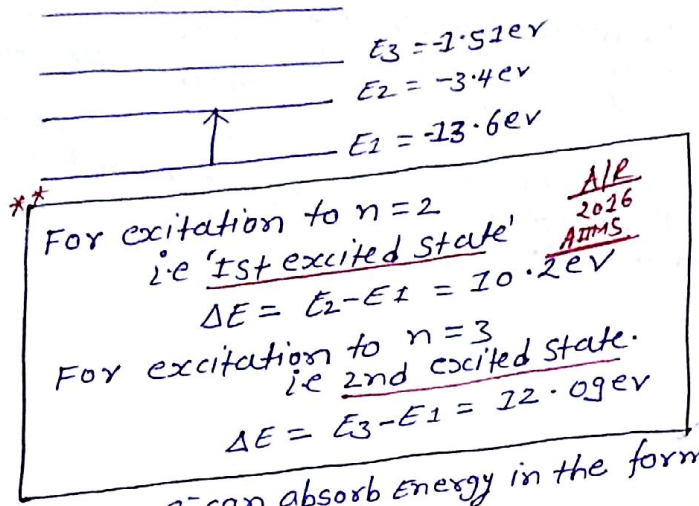 E3 = -1.51ev
E2 = -3.4ev
E1 = -13.6ev
**
For excitation to n=2
i.e 'Ist excited state'
ΔE = E2-E1 = 10.2ev
2016
AIIMS
For excitation to n=3
ie 2nd excited state.
ΔE = E3-E1 = 12.09ev
can absorb Energy in the form